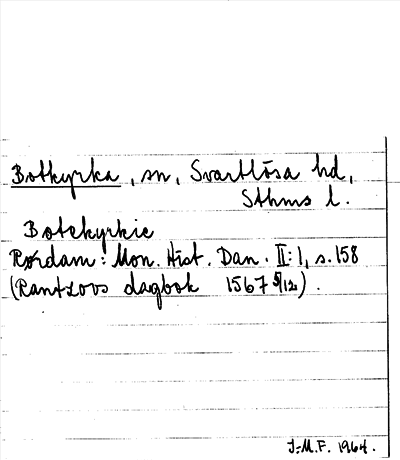 Botkyrka, sn, Svartlösa hd,
Sthms l.
Botekyrkie
Rørdam: Mon. Hist. Dan. II:1, s. 158
(Rantzovs dagbok 1567 5/12).
J.M.F. 1964.